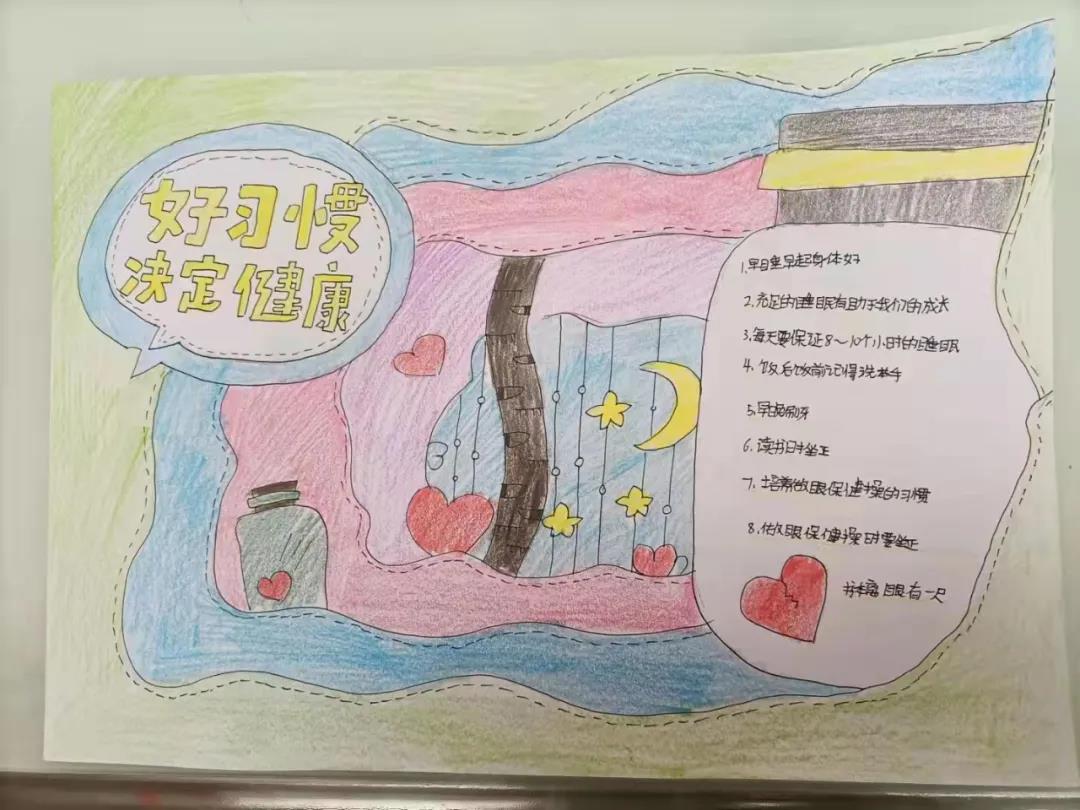 好习惯
决定健康
1.早睡早起身体好
2.充足的睡眠有助于我们的成长
3.每天要保证8～10个小时的睡眠
4.饭后饭前记得洗手
5.早晚刷牙
6.读书时坐正
7.培养做眼保健操的习惯
8.做眼保健操时要坐正
书本离眼有一尺